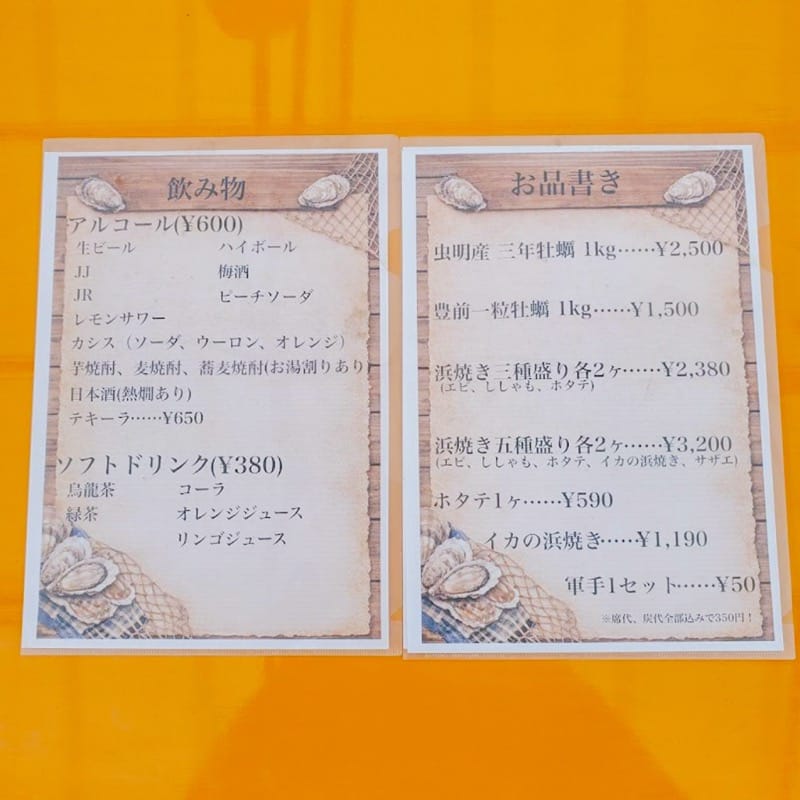 飲み物
アルコール(¥600)
生ビール ハイボール
JJ 梅酒
JR ピーチソーダ
レモンサワー
カシス（ソーダ、ウーロン、オレンジ）
芋焼酎、麦焼酎、蕎麦焼酎(お湯割りあり)
日本酒(熱燗あり)
テキーラ……¥650
ソフトドリンク(¥380)
烏龍茶 コーラ
緑茶 オレンジジュース
リンゴジュース
お品書き
虫明産 三年牡蠣 1kg……¥2,500
豊前一粒牡蠣 1kg……¥1,500
浜焼き三種盛り各2ヶ……¥2,380
(エビ、ししゃも、ホタテ)
浜焼き五種盛り各2ヶ……¥3,200
(エビ、ししゃも、ホタテ、イカの浜焼き、サザエ)
ホタテ1ヶ……¥590
イカの浜焼き……¥1,190
軍手1セット……¥50
※席代、炭代全部込みで350円！